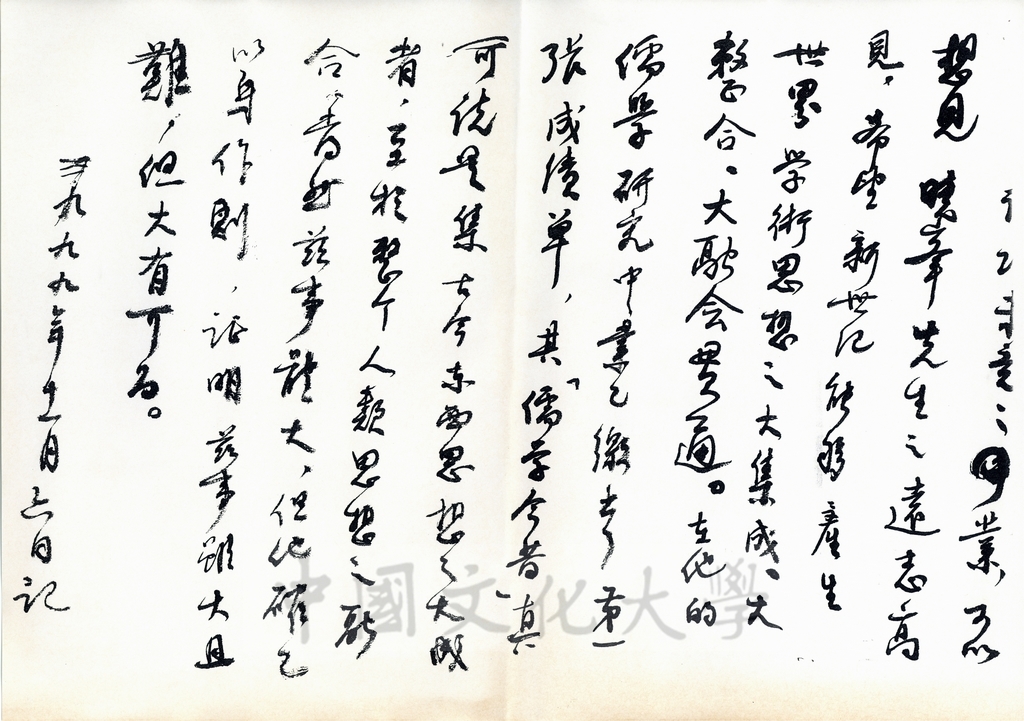 業，可以
想見 曉峯先生之遠志高
見，希望新世紀能夠產生
世界學術思想之大集成、大
整合、大融会貫通。在他的
儒學研究中業已繳出了第一
張成績單，其「儒学今昔」真
可說是集古今东西思想之大成
者，至於整个人類思想之融
合，當然茲事體大，但他確已
以身作則，証明茲事雖大且
難，但大有可為。
一九九九年十一月六日記
中國文化大學